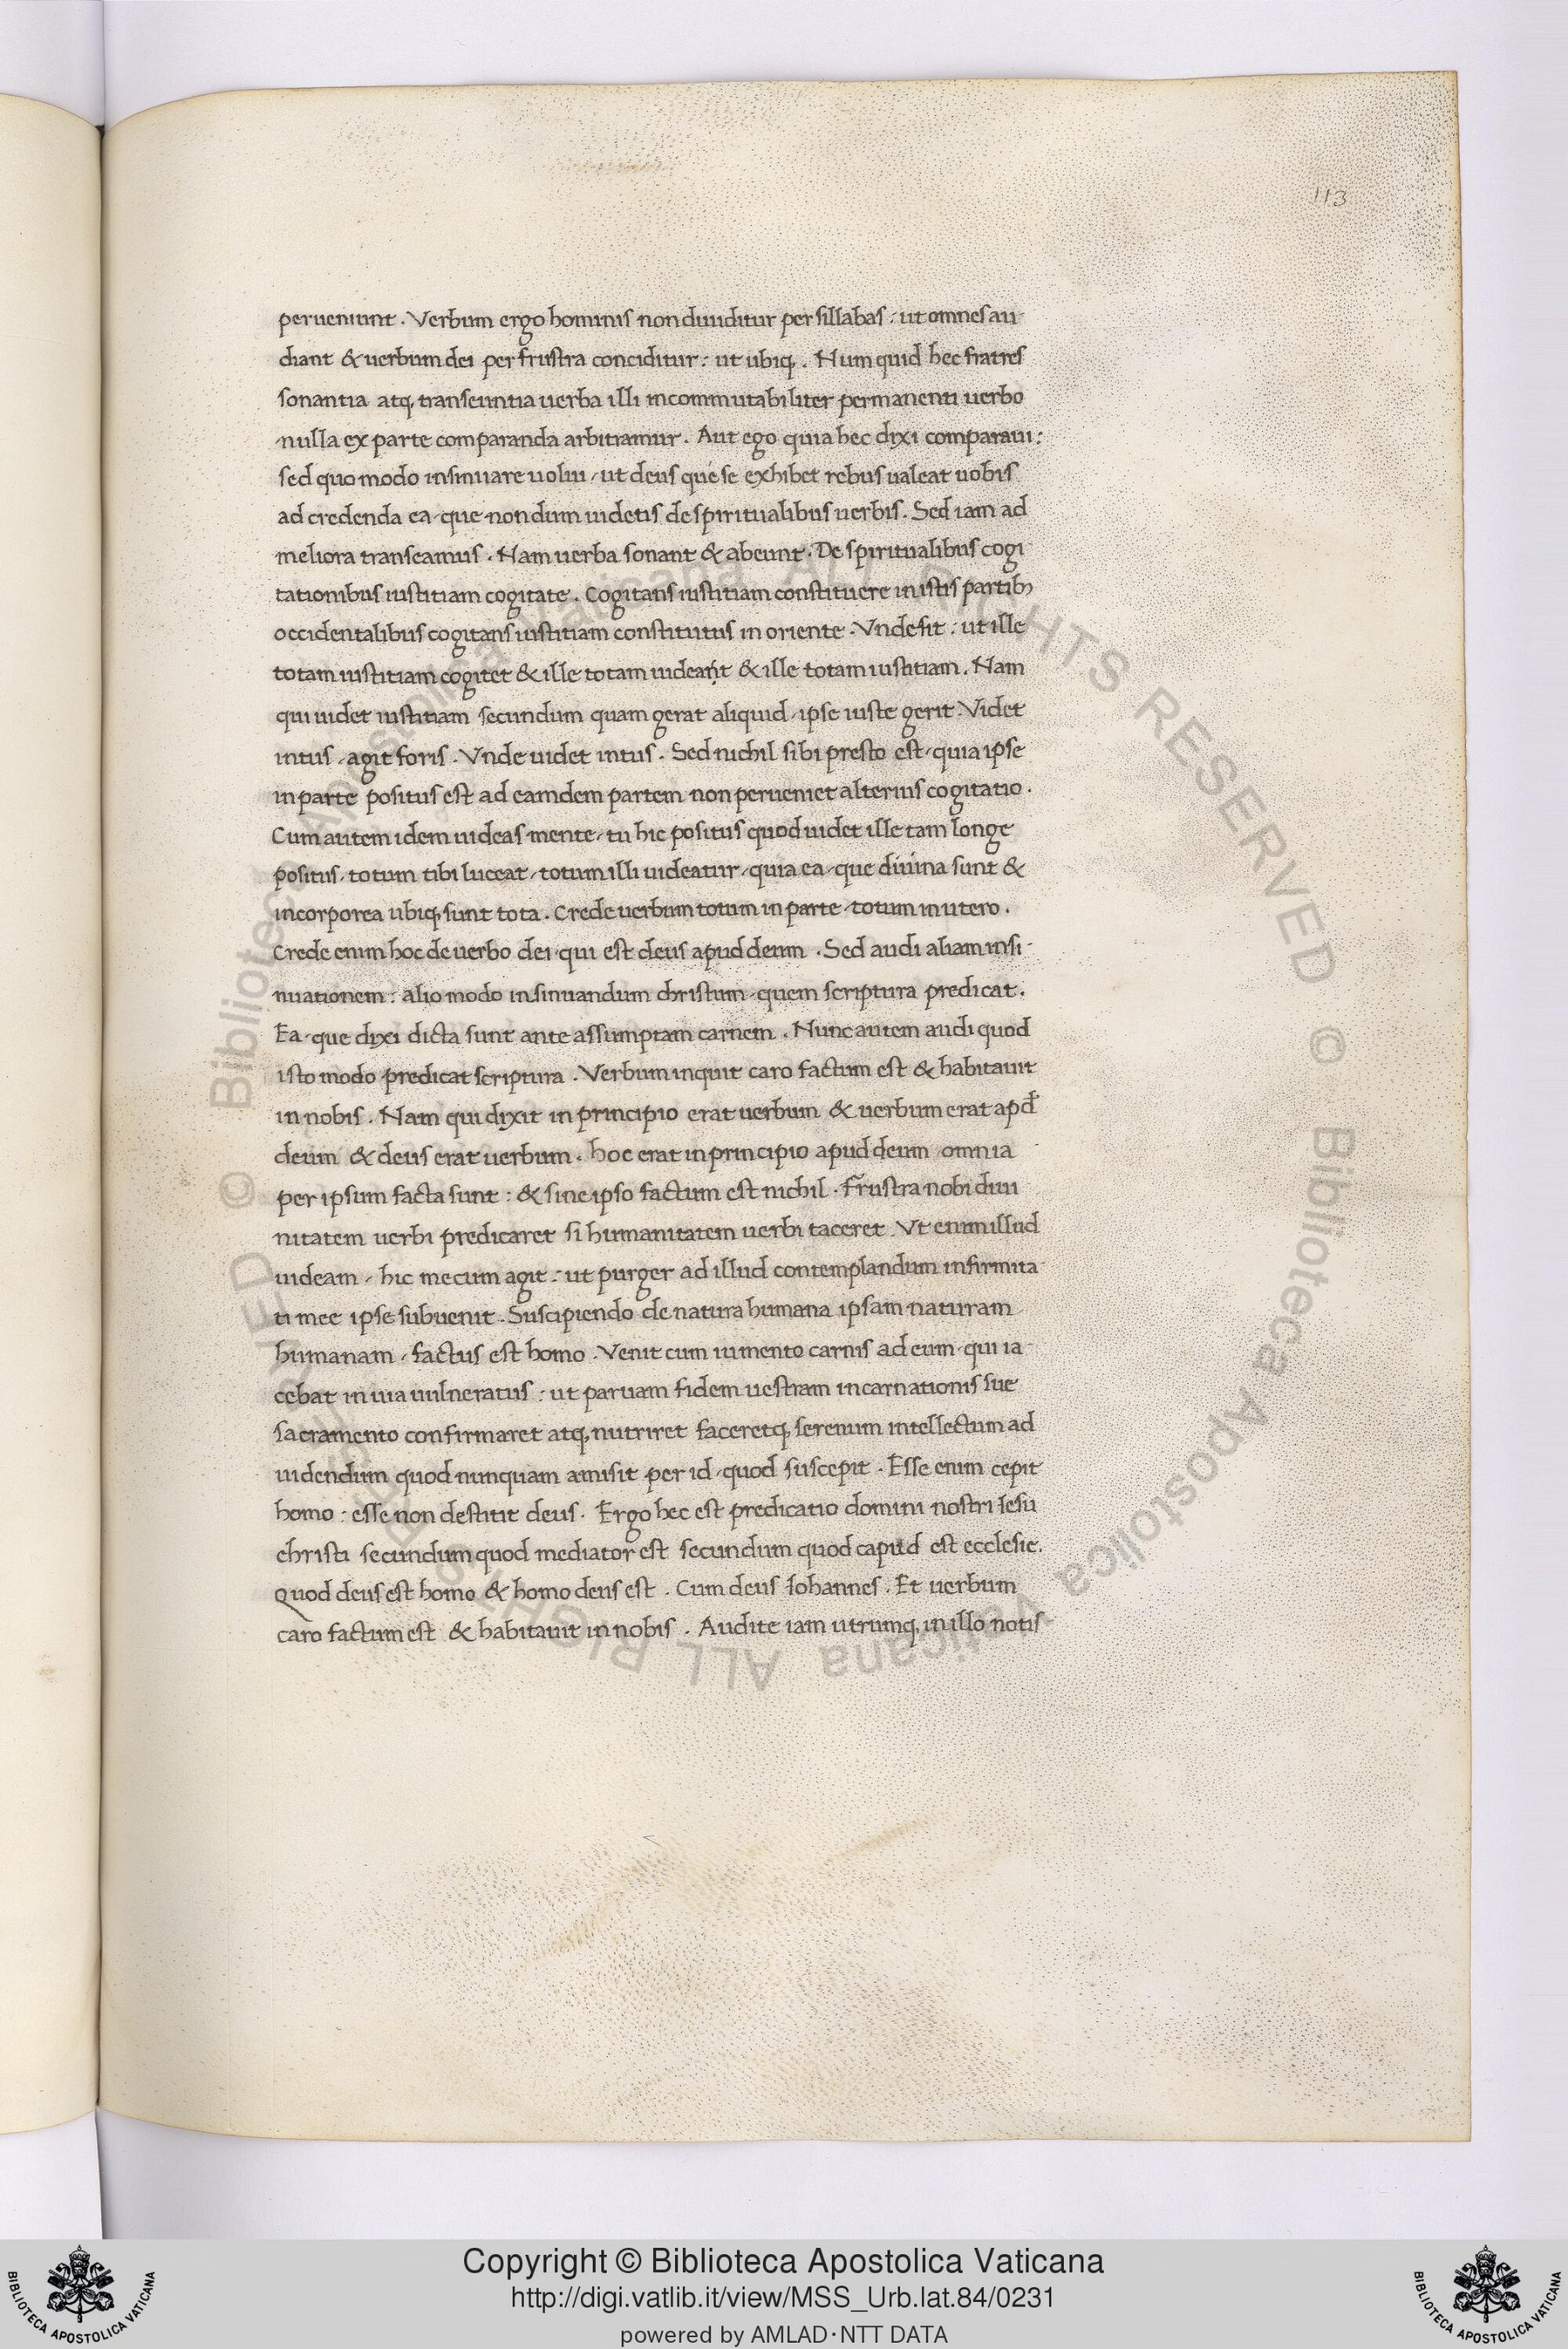 113
perueniunt. Verbum ergo hominis non diuiditur per sillabas: ut omnes au
diant & uerbum dei per frustra conciditur: ut ubiq;. Num quid hec fratres
sonantia atq; transeuntia uerba illi incommutabiliter permanenti uerbo
nulla ex parte comparanda arbitramur. Aut ego quia hec dixi comparaui:
sed quo modo insinuare uolui, ut deus que se exhibet rebus ualeat uobis
ad credenda ea, que nondum uidetis de spiritualibus uerbis. Sed iam ad
meliora transeamus. Nam uerba sonant & abeunt. De spiritualibus cogi
tationibus iustitiam cogitate. Cogitans iustitiam constituere in istis partib;
occidentalibus cogitans iustitiam constitutus in oriente. Vnde fit: ut ille
totam iustitiam cogitet & ille totam uideant & ille totam iustitiam. Nam
qui uidet iustitiam secundum quam gerat aliquid, ipse iuste gerit. Videt
intus, agit foris. Vnde uidet intus. Sed nichil sibi presto est, quia ipse
in parte positus est ad eamdem partem non perueniet alterius cogitatio.
Cum autem idem uideas mente, tu hic positus quod uidet ille tam longe
positus, totum tibi luceat, totum illi uideatur, quia ea, que diuina sunt &
incorporea ubiq; sunt tota. Crede uerbum totum in parte, totum in utero.
Crede enim hoc de uerbo dei, qui est deus apud deum. Sed audi aliam insi-
nuationem: alio modo insinuandum christum, quem scriptura predicat.
Ea, que dixi dicta sunt ante assumptam carnem. Nunc autem audi quod
isto modo predicat scriptura. Verbum inquit caro factum est & habitauit
in nobis. Nam qui dixit in principio erat uerbum & uerbum erat apd
deum & deus erat uerbum. hoc erat in principio apud deum omnia
per ipsum facta sunt: & sine ipso factum est nichil. Frustra nobi diui
nitatem uerbi predicaret si humanitatem uerbi taceret. Vt enim illud
uideam, hic mecum agit: ut purger ad illud contemplandum infirmita
ti mee ipse subuenit. Suscipiendo de natura humana ipsam naturam
humanam, factus est homo. Venit cum iumento carnis ad eum, qui ia-
cebat in uia uulneratus: ut paruam fidem uestram incarnationis sue
sacramento confirmaret atq; nutriret faceretq; serenum intellectum ad
uidendum quod nunquam amisit per id, quod suscepit. Esse enim cepit
homo: esse non destitit deus. Ergo hec est predicatio domini nostri Iesu
christi secundum quod mediator est secundum quod capud est ecclesie.
Quod deus est homo & homo deus est. Cum deus Iohannes. Et uerbum
caro factum est & habitauit in nobis. Audite iam utrumq; in illo notis-
© Biblioteca Apostolica Vaticana ALL RIGHTS RESERVED © Biblioteca Apostolica Vaticana ALL RIGHTS RESERVED
Copyright © Biblioteca Apostolica Vaticana
http://digi.vatlib.it/view/MSS_Urb.lat.84/0231
powered by AMLAD·NTT DATA
BIBLIOTECA APOSTOLICA VATICANA
BIBLIOTECA APOSTOLICA VATICANA